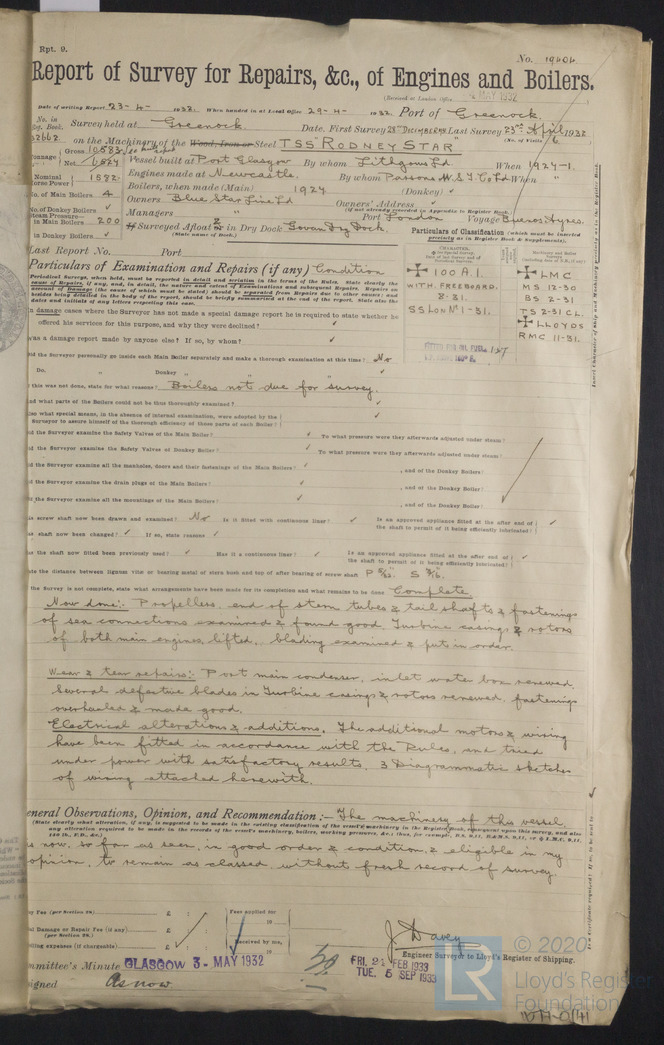 Rpt. 9.
No. 19404.
Report of Survey for Repairs, &c., of Engines and Boilers.
(Received at London Office 2 MAY 1932
Date of writing Report 23-4- 1932. When handed in at Local Office 29-4- 1932. Port of Greenock.
No. in Survey held at Greenock. Date, First Survey Last Survey 23rd April 1932
Reg. Book. (No. of Visits 6
32662 on the Machinery of the Wood, Iron or Steel TSS "RODNEY STAR"
Gross 10583
Tonnage Vessel built at Port Glasgow By whom Lithgows Ltd When 1924-1.
Net 6824
Nominal Horse Power 1582 Engines made at Newcastle. By whom Parsons M.S.T. Co Ltd When "
Boilers, when made (Main) 1924 (Donkey) ✓
No. of Main Boilers 4 Owners Blue Star Line Ld Owners' Address ✓
(if not already recorded in Appendix to Register Book.)
No. of Donkey Boilers ✓ Managers " Port London Voyage Buenos Ayres.
Steam Pressure in Main Boilers 200 If Surveyed Afloat or in Dry Dock Govan Dry Dock.
(State name of Dock.)
in Donkey Boilers ✓
Particulars of Classification (which must be inserted precisely as in Register Book & Supplements).
Last Report No. Port
Particulars of Examination and Repairs (if any) Condition
✠ 100 A.1.
WITH. FREEBOARD.
8-31.
SS LON No 1-31.
✠ LMC
MS 12-30
BS 2-31
TS 2-31 CL.
✠ LLOYDS
RMC 11-31.
In damage cases where the Surveyor has not made a special damage report he is required to state whether he offered his services for this purpose, and why they were declined? ✓
Was a damage report made by anyone else? If so, by whom? ✓
Did the Surveyor personally go inside each Main Boiler separately and make a thorough examination at this time? No
Do. " Donkey " " ✓
If this was not done, state for what reasons? Boilers not due for survey.
And what parts of the Boilers could not be thus thoroughly examined? ✓
Also what special means, in the absence of internal examination, were adopted by the Surveyor to assure himself of the thorough efficiency of those parts of each Boiler? ✓
Did the Surveyor examine the Safety Valves of the Main Boiler? ✓ To what pressure were they afterwards adjusted under steam?
Did the Surveyor examine the Safety Valves of Donkey Boiler? ✓ To what pressure were they afterwards adjusted under steam?
Did the Surveyor examine all the manholes, doors and their fastenings of the Main Boilers? ✓ , and of the Donkey Boiler?
Did the Surveyor examine the drain plugs of the Main Boilers? ✓ , and of the Donkey Boiler?
Did the Surveyor examine all the mountings of the Main Boilers? ✓ , and of the Donkey Boiler?
Has screw shaft now been drawn and examined? No Is it fitted with continuous liner? ✓ Is an approved appliance fitted at the after end of the shaft to permit of it being efficiently lubricated? ✓
Has shaft now been changed? ✓ If so, state reasons ✓
Has the shaft now fitted been previously used? ✓ Has it a continuous liner? ✓ Is an approved appliance fitted at the after end of the shaft to permit of it being efficiently lubricated? ✓
State the distance between lignum vitæ or bearing metal of stern bush and top of after bearing of screw shaft P 5/32. S 3/16.
If the Survey is not complete, state what arrangements have been made for its completion and what remains to be done Complete
Now done:- Propellers, end of stern tubes & tail shafts & fastenings
of sea connections examined & found good. Turbine casings & rotors
of both main engines, lifted, blading examined & put in order.
Wear & tear repairs:- Port main condenser, inlet water box renewed.
Several defective blades in Turbine casings & rotors renewed, fastenings
overhauled & made good.
Electrical alterations & additions. The additional motors & wiring
have been fitted in accordance with the Rules, and tried
under power with satisfactory results. 3 Diagrammatic sketches
of wiring attached herewith.
General Observations, Opinion, and Recommendation:- The machinery of this vessel,
is now, so far as seen, in good order & condition, & eligible in my
opinion, to remain as classed without fresh record of survey.
Survey Fee (per Section 29) £ : : Fees applied for
Special Damage or Repair Fee (if any) £ : : 19
(per Section 29.)
Travelling expenses (if chargeable) £ : : Received by me,
19
J Davey
Engineer Surveyor to Lloyd's Register of Shipping.
Committee's Minute GLASGOW 3 - MAY 1932
FRI. 24 FEB 1933
TUE. 5 SEP 1933
Assigned As now
© 2020
LR
Lloyd's Register
Foundation